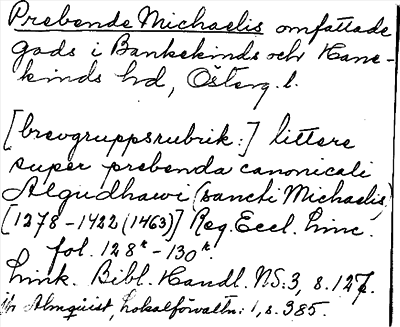 Prebende Michaelis omfattade
gods i Bankekinds och Hane-
kinds hd, Österg. l.
[brevgruppsrubrik:] littere
super prebenda canonicali
Algudhawi (sancti Michaelis)
[1278-1422 (1463)] Reg. Eccl. Linc.
fol. 128r - 130r.
Link. Bibl. Handl. NS. 3, s. 127.
Almquist, Lokalförvaltn: 1, s. 385.